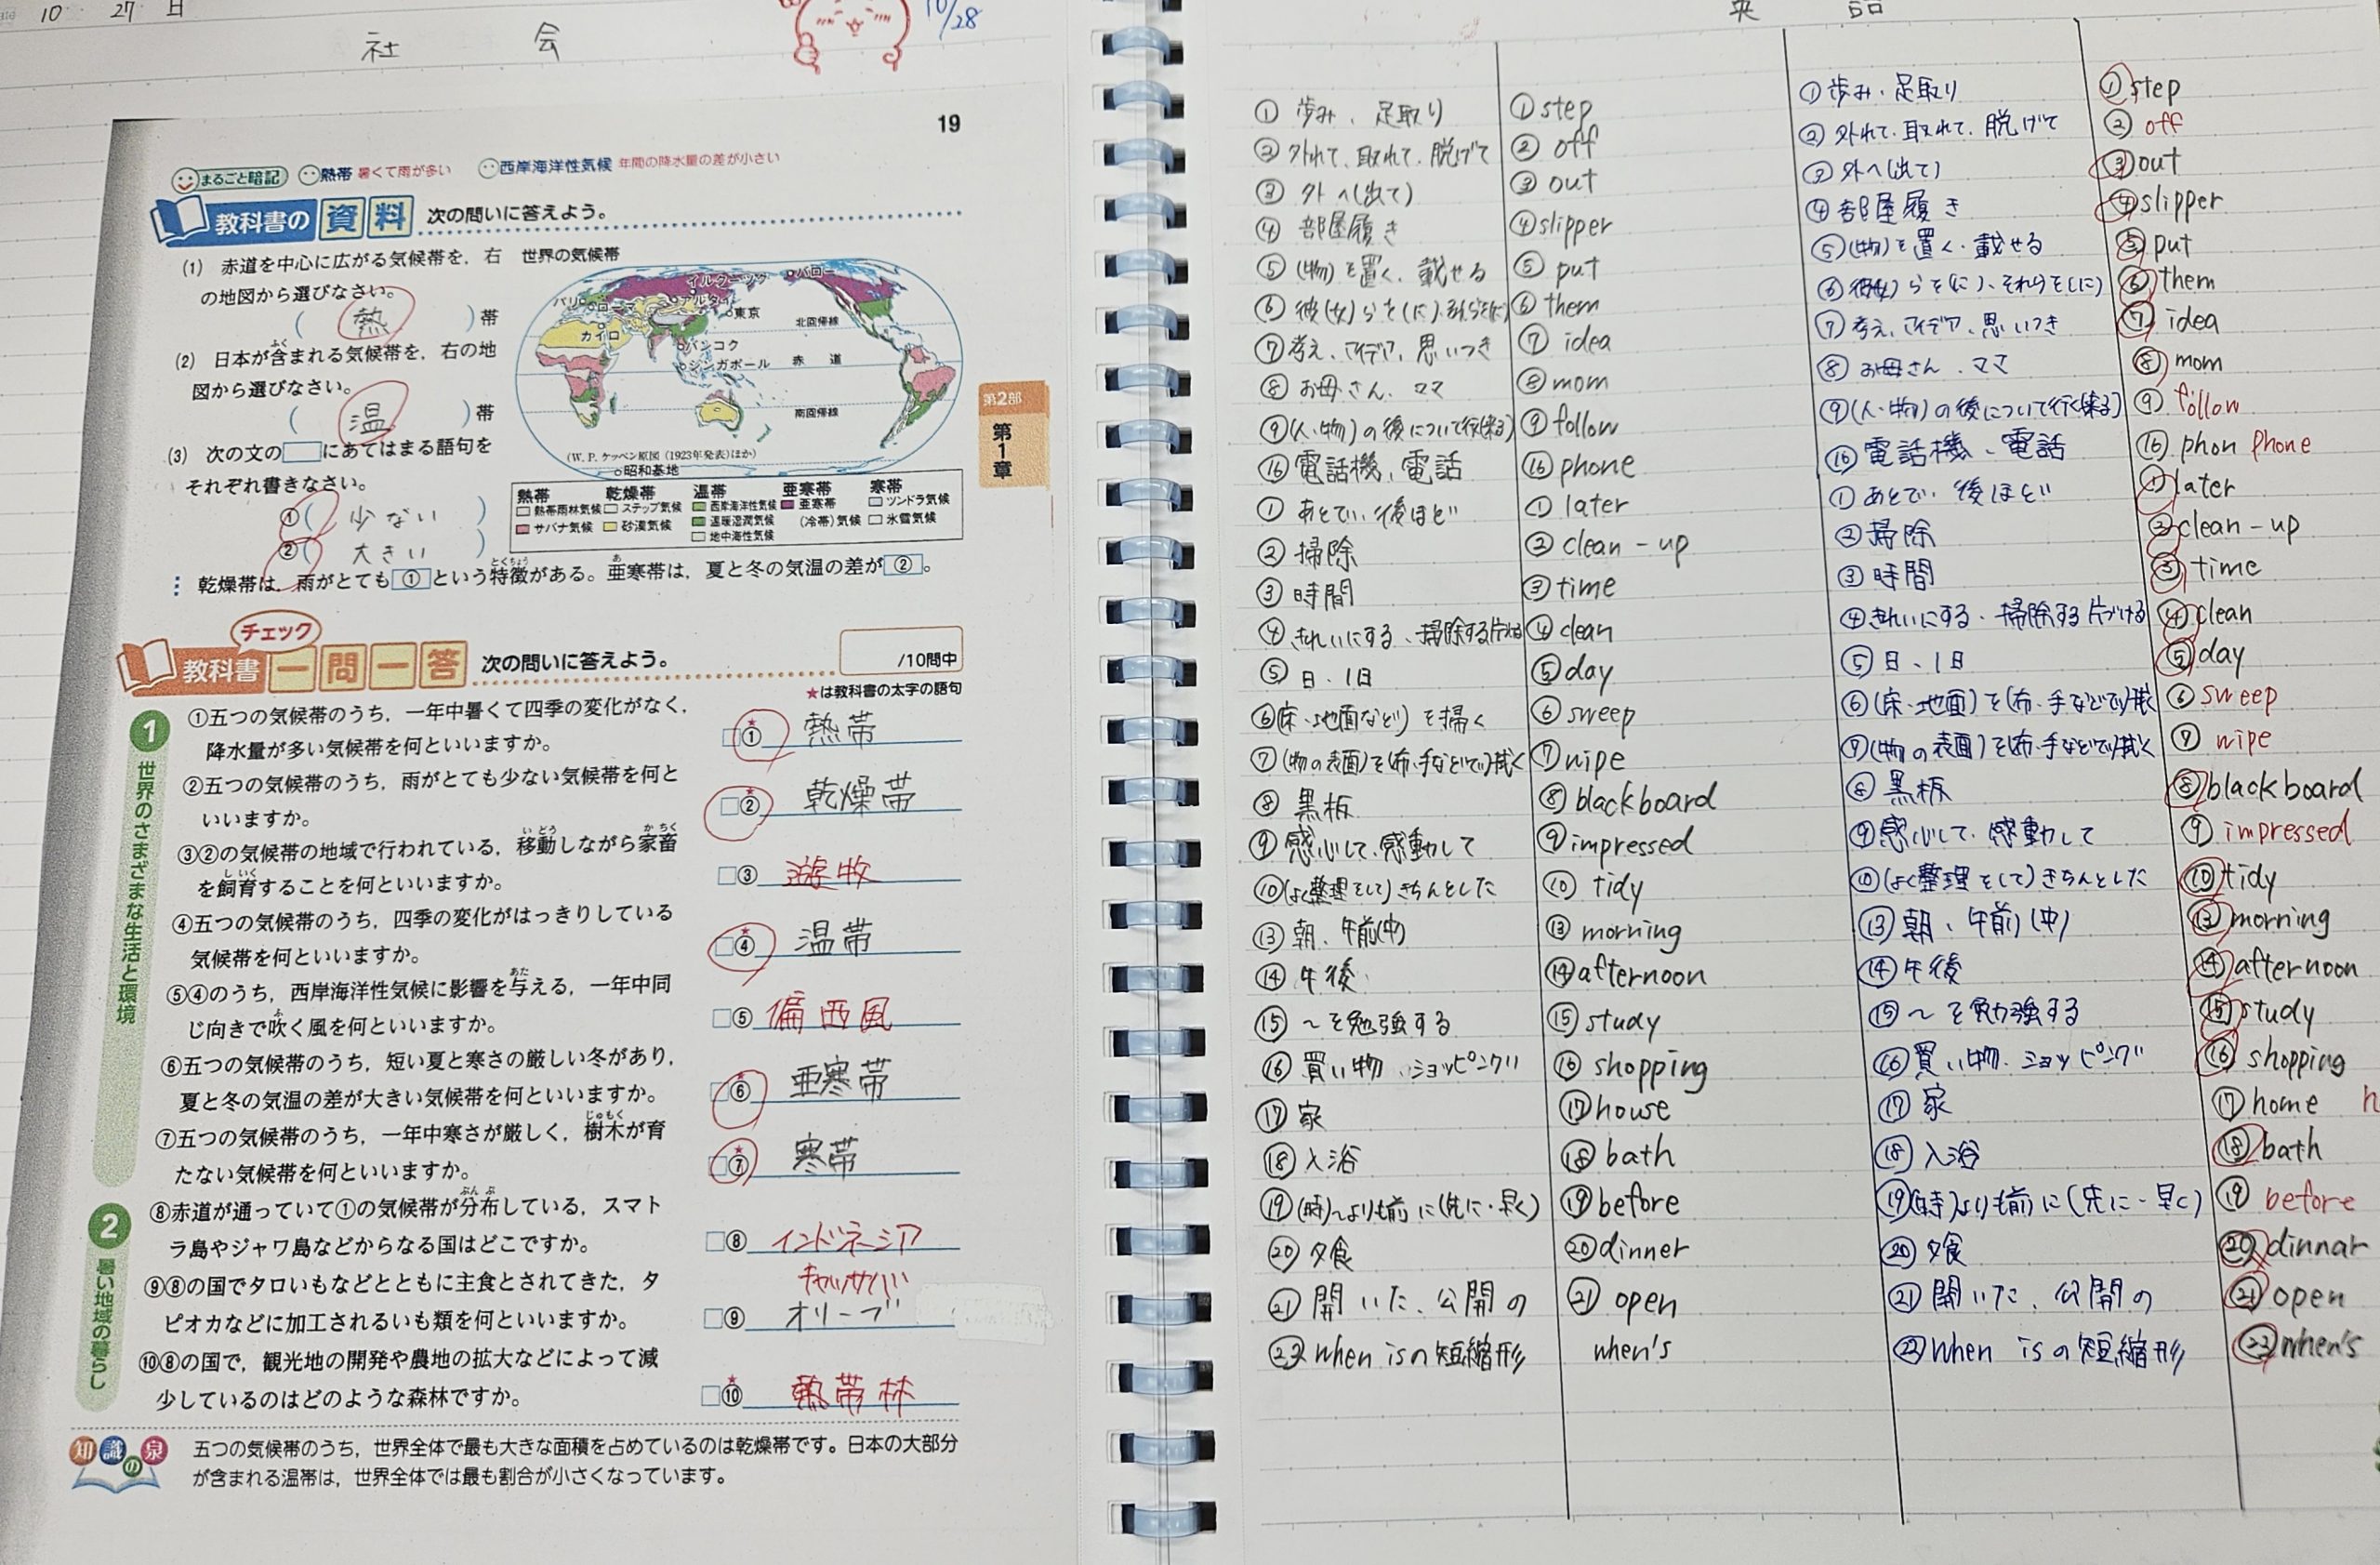 10 27 日
10/28
社 会
19
まるごと暗記 熱帯 暑くて雨が多い 西岸海洋性気候 年間の降水量の差が小さい
教科書の資料 次の問いに答えよう。
(1) 赤道を中心に広がる気候帯を，右
の地図から選びなさい。
( 熱 )帯
(2) 日本が含まれる気候帯を，右の地
図から選びなさい。
( 温 )帯
(3) 次の文の□にあてはまる語句を
それぞれ書きなさい。
①( 少ない )
②( 大きい )
乾燥帯は，雨がとても①という特徴がある。亜寒帯は，夏と冬の気温の差が②。
世界の気候帯
イルクーツク
バロー
パリ
ローマ
アルタイ
東京
カイロ
北回帰線
バンコク
シンガポール
赤 道
南回帰線
(W. P. ケッペン原図 (1923年発表)ほか)
昭和基地
熱帯 乾燥帯 温帯 亜寒帯 寒帯
熱帯雨林気候 ステップ気候 西岸海洋性気候 亜寒帯 ツンドラ気候
サバナ気候 砂漠気候 温暖湿潤気候 (冷帯)気候 氷雪気候
地中海性気候
第2部
第1章
チェック
教科書 一問一答 次の問いに答えよう。
/10問中
★は教科書の太字の語句
1 世界のさまざまな生活と環境
①五つの気候帯のうち，一年中暑くて四季の変化がなく，
降水量が多い気候帯を何といいますか。
① 熱帯
②五つの気候帯のうち，雨がとても少ない気候帯を何と
いいますか。
② 乾燥帯
③②の気候帯の地域で行われている，移動しながら家畜
を飼育することを何といいますか。
③ 遊牧
④五つの気候帯のうち，四季の変化がはっきりしている
気候帯を何といいますか。
④ 温帯
⑤④のうち，西岸海洋性気候に影響を与える，一年中同
じ向きで吹く風を何といいますか。
⑤ 偏西風
⑥五つの気候帯のうち，短い夏と寒さの厳しい冬があり，
夏と冬の気温の差が大きい気候帯を何といいますか。
⑥ 亜寒帯
⑦五つの気候帯のうち，一年中寒さが厳しく，樹木が育
たない気候帯を何といいますか。
⑦ 寒帯
2 暑い地域の暮らし
⑧赤道が通っていて①の気候帯が分布している，スマト
ラ島やジャワ島などからなる国はどこですか。
⑧ インドネシア
⑨⑧の国でタロいもなどとともに主食とされてきた，タ
ピオカなどに加工されるいも類を何といいますか。
キャッサバ
⑨ オリーブ
⑩⑧の国で，観光地の開発や農地の拡大などによって減
少しているのはどのような森林ですか。
⑩ 熱帯林
知識の泉
五つの気候帯のうち，世界全体で最も大きな面積を占めているのは乾燥帯です。日本の大部分
が含まれる温帯は，世界全体では最も割合が小さくなっています。
英 語
① 歩み、足取り ①step ①歩み・足取り ①step
② 外れて、取れて、脱げて ② off ② 外れて、取れて、脱げて ② off
③ 外へ(出て) ③ out ③ 外へ(出て) ③out
④ 部屋履き ④slipper ④部屋履き ④slipper
⑤ (物)を置く、載せる ⑤ put ⑤(物)を置く・載せる ⑤ put
⑥ 彼(女)らを(に)、それらを(に) ⑥ them ⑥ 彼(女)らを(に)、それらを(に) ⑥them
⑦ 考え、アイデア、思いつき ⑦ idea ⑦ 考え、アイデア、思いつき ⑦ idea
⑧ お母さん、ママ ⑧ mom ⑧ お母さん、ママ ⑧ mom
⑨(人・物)の後について行く(来る) ⑨ follow ⑨(人・物)の後について行く(来る) ⑨ follow
⑯ 電話機、電話 ⑯ phone ⑯電話機、電話 ⑯ phon phone
① あとで、後ほど ① later ① あとで、後ほど ①later
② 掃除 ② clean-up ②掃除 ②clean-up
③ 時間 ③ time ③ 時間 ③time
④ きれいにする、掃除する片づける ④ clean ④きれいにする・掃除する片づける ④clean
⑤ 日、1日 ⑤day ⑤ 日、1日 ⑤day
⑥(床・地面など)を掃く ⑥ sweep ⑥(床・地面)を(布・手などで)拭く ⑥ sweep
⑦(物の表面)を(布・手などで)拭く ⑦wipe ⑦(物の表面)を(布・手などで)拭く ⑦ wipe
⑧ 黒板 ⑧ blackboard ⑧ 黒板 ⑧blackboard
⑨感心して、感動して ⑨impressed ⑨感心して、感動して ⑨ impressed
⑩(よく整理をして)きちんとした ⑩ tidy ⑩(よく整理をして)きちんとした ⑩tidy
⑬朝、午前(中) ⑬ morning ⑬朝、午前(中) ⑬morning
⑭午後 ⑭afternoon ⑭午後 ⑭afternoon
⑮ ～を勉強する ⑮study ⑮ ～を勉強する ⑮study
⑯ 買い物、ショッピング ⑯ shopping ⑯買い物、ショッピング ⑯ shopping
⑰ 家 ⑰house ⑰ 家 ⑰home h
⑱入浴 ⑱bath ⑱ 入浴 ⑱bath
⑲(時)～よりも前に(先に・早く) ⑲before ⑲(時)よりも前に(先に・早く) ⑲ before
⑳ 夕食 ⑳dinner ⑳ 夕食 ⑳dinnar
㉑ 開いた、公開の ㉑ open ㉑ 開いた、公開の ㉑open
㉒when isの短縮形 when's ㉒When isの短縮形 ㉒when's